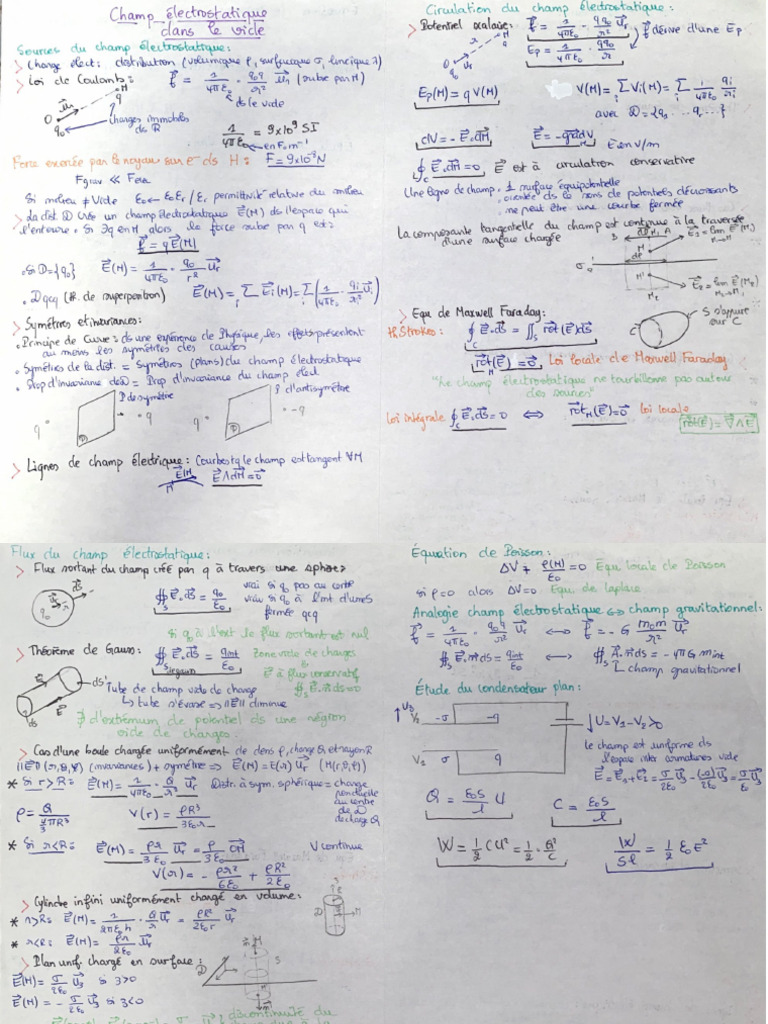 Champ électrostatique
dans le vide
Sources du champ électrostatique:
> Charge élect: distribution (volumique ρ, surfacique σ, linéique λ)
> Loi de Coulomb: f = 1/4πε₀ · q₀q/r² u_r (subie par M)
ds le vide
O q₀ u_r M q
charges immobiles ds R
1/4πε₀ = 9×10⁹ SI
en F.m⁻¹
Force exercée par le noyau sur e⁻ ds H: F = 9×10⁻⁸ N
Fgrav << Félec
Si milieu ≠ Vide ε₀ ← ε₀εr / εr permittivité relative du milieu
> La dist D crée un champ électrostatique E(M) ds l'espace qui
l'entoure. Si ∃q en M alors la force subie par q est:
f = q E(M)
• Si D={q₀} E(M) = 1/4πε₀ · q₀/r² u_r
• D qcq (Pr. de superposition) E(M) = Σ Ei(M) = Σ (1/4πε₀ · qi/ri² ui)
> Symétries et invariances:
• Principe de Curie: ds une expérience de Physique, les effets présentent
au moins les symétries des causes
• Symétries de la dist. = Symétries (plans) du champ électrostatique
• Prop d'invariance de D = Prop d'invariance du champ élect
P de symétrie
P d'antisymétrie
q • • q
q • • -q
> Lignes de champ électrique: Courbes tq le champ est tangent ∀M
E(M)
M
E∧dM = 0
Circulation du champ électrostatique:
> Potentiel scalaire: f = 1/4πε₀ · qq₀/r² u_r
f dérive d'une Ep
Ep = 1/4πε₀ · qq₀/r
Ep(M) = q V(M)
V(M) = Σ Vi(M) = Σ 1/4πε₀ qi/ri
avec D = {q₁ ... q ...}
dV = -E.dM E = -grad V E en V/m
∮ E.dM = 0 E est à circulation conservative
Une ligne de champ • ⊥ surface équipotentielle
• orientée ds le sens de potentiels décroissants
• ne peut être une courbe fermée
La composante tangentielle du champ est continue à la traversée
d'une surface chargée
> Equ de Maxwell Faraday:
th. Strokes: ∮ E.dS = ∬ rot(E)dS
S s'appuie
sur C
rot(E) = 0 Loi locale de Maxwell Faraday
"Le champ électrostatique ne tourbillonne pas autour
des sources"
Loi intégrale ∮ E.dS = 0 ⟺ rot_M(E) = 0 loi locale
rot(E) = ∇∧E
Flux du champ électrostatique:
> Flux sortant du champ créé par q à travers une sphère
∯ E.dS = q₀/ε₀
vrai si q₀ pas au centre
vrai si q₀ à l'int d'une S
fermée qcq
si q₀ à l'ext le flux sortant est nul
> Théorème de Gauss: ∯ E.dS = qint/ε₀
S gauss
Zone vide de charges
E à flux conservatif
∯ E.n dS = 0
Tube de champ vide de charge
↳ tube s'évase ⟹ ||E|| diminue
∄ d'extrémum de potentiel ds une région
vide de charges
> Cas d'une boule chargée uniformément de dens ρ, charge Q et rayon R
(invariances) + symétrie ⟹ E(M) = E(r) u_r (M(r,θ,φ))
* Si r>R: E(M) = 1/4πε₀ · Q/r² u_r
Distr. à sym. sphérique = charge
ponctuelle
au centre
de D
de charge Q
ρ = Q / 4/3πR³
V(r) = ρR³/3ε₀r
* Si r<R: E(M) = ρr/3ε₀ u_r = ρ/3ε₀ OM
V continue
V(r) = -ρr²/6ε₀ + ρR²/2ε₀
> Cylindre infini uniformément chargé en volume:
* r>R: E(M) = 1/2πε₀h · Q/r u_r = ρR²/2ε₀r u_r
* r<R: E(M) = ρr/2ε₀ u_r
> Plan unif. chargé en surface:
E(M) = σ/2ε₀ u₃ si z>0
E(M) = -σ/2ε₀ u₃ si z<0
Équation de Poisson:
ΔV + ρ(M)/ε₀ = 0 Equ locale de Poisson
si ρ=0 alors ΔV=0 Equ de laplace
Analogie champ électrostatique ⟷ champ gravitationnel:
f = 1/4πε₀ · q₀q/r² u_r ⟷ f = -G m₀m/r² u_r
∯ E.n dS = qint/ε₀ ⟷ ∯ A.n dS = -4πG mint
champ gravitationnel
Étude du condensateur plan:
u₃ V₁ -σ -q
U = V₁-V₂ >0
V₂ σ q
le champ est uniforme ds
l'espace inter armatures vide
E = E₁+E₂ = σ/2ε₀ u₃ - (-σ)/2ε₀ u₃ = σ/ε₀ u₃
Q = ε₀S/l U
C = ε₀S/l
W = 1/2 CU² = 1/2 · Q²/C
W/Sl = 1/2 ε₀E²